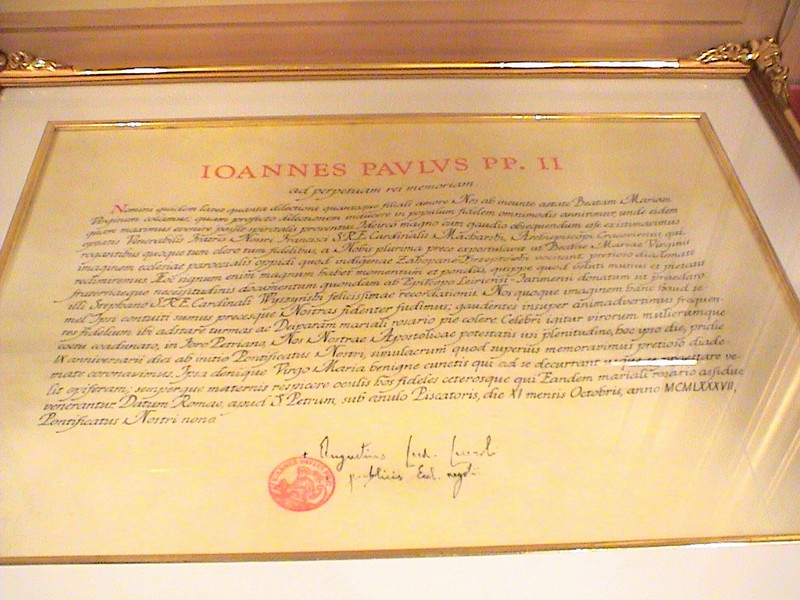 IOANNES PAVLVS PP. II
ad perpetuam rei memoriam
Nemini quidem latet quanta dilectione quantoque filiali amore Nos ab ineunte aetate Beatam Mariam
Virginem colamus, quam profecto dilectionem inducere in populum fidelem omnimodis annitimur, unde eidem
quam maximus evenire possit spiritalis proventus. Idcirco magno cum gaudio obsequendum esse existimavimus
optatis Venerabilis Fratris Nostri Francisci S.R.E. Cardinalis Macharski, Archiepiscopi Cracoviensis, qui,
rogantibus quoque tum clero tum fidelibus, a Nobis plurima prece expostulavit ut Beatae Mariae Virginis
imaginem ecclesiae paroecialis oppidi quod indigenae Zakopane vocitant, pretioso diademate
redimiremus. Hoc signum enim magnum habet momentum et pondus, quippe quod veluti mutuae et pietatis
fraternaeque necessitudinis documentum quondam ab Episcopo Leiriensi-Fatimensi donatum sit praeclaro
illi Stephano S.R.E. Cardinali Wyszyński felicissimae recordationis. Nos quoque imaginem hanc haud se
mel Ipsi contuiti sumus precesque Nostras fidenter fudimus, gaudentes insuper animadvertimus frequen
tes fidelium ibi adstare turmas ac Deiparam mariali rosario pie colere. Celebri igitur virorum mulierumque
coetu coadunato, in foro Petriano, Nos Nostrae Apostolicae potestatis usi plenitudine, hoc ipso die, pridie
IX anniversarii diei ab initio Pontificatus Nostri, simulacrum quod superius memoravimus pretioso diade-
mate coronavimus. Ipsa denique Virgo Maria benigne cunctis qui ad se decurrant usque se praestare ve-
lit opiferam, semperque maternis respicere oculis hos fideles ceterosque qui Eandem mariali rosario assidue
venerantur. Datum Romae, apud S. Petrum, sub anulo Piscatoris, die XI mensis Octobris, anno MCMLXXXVII,
Pontificatus Nostri nono.